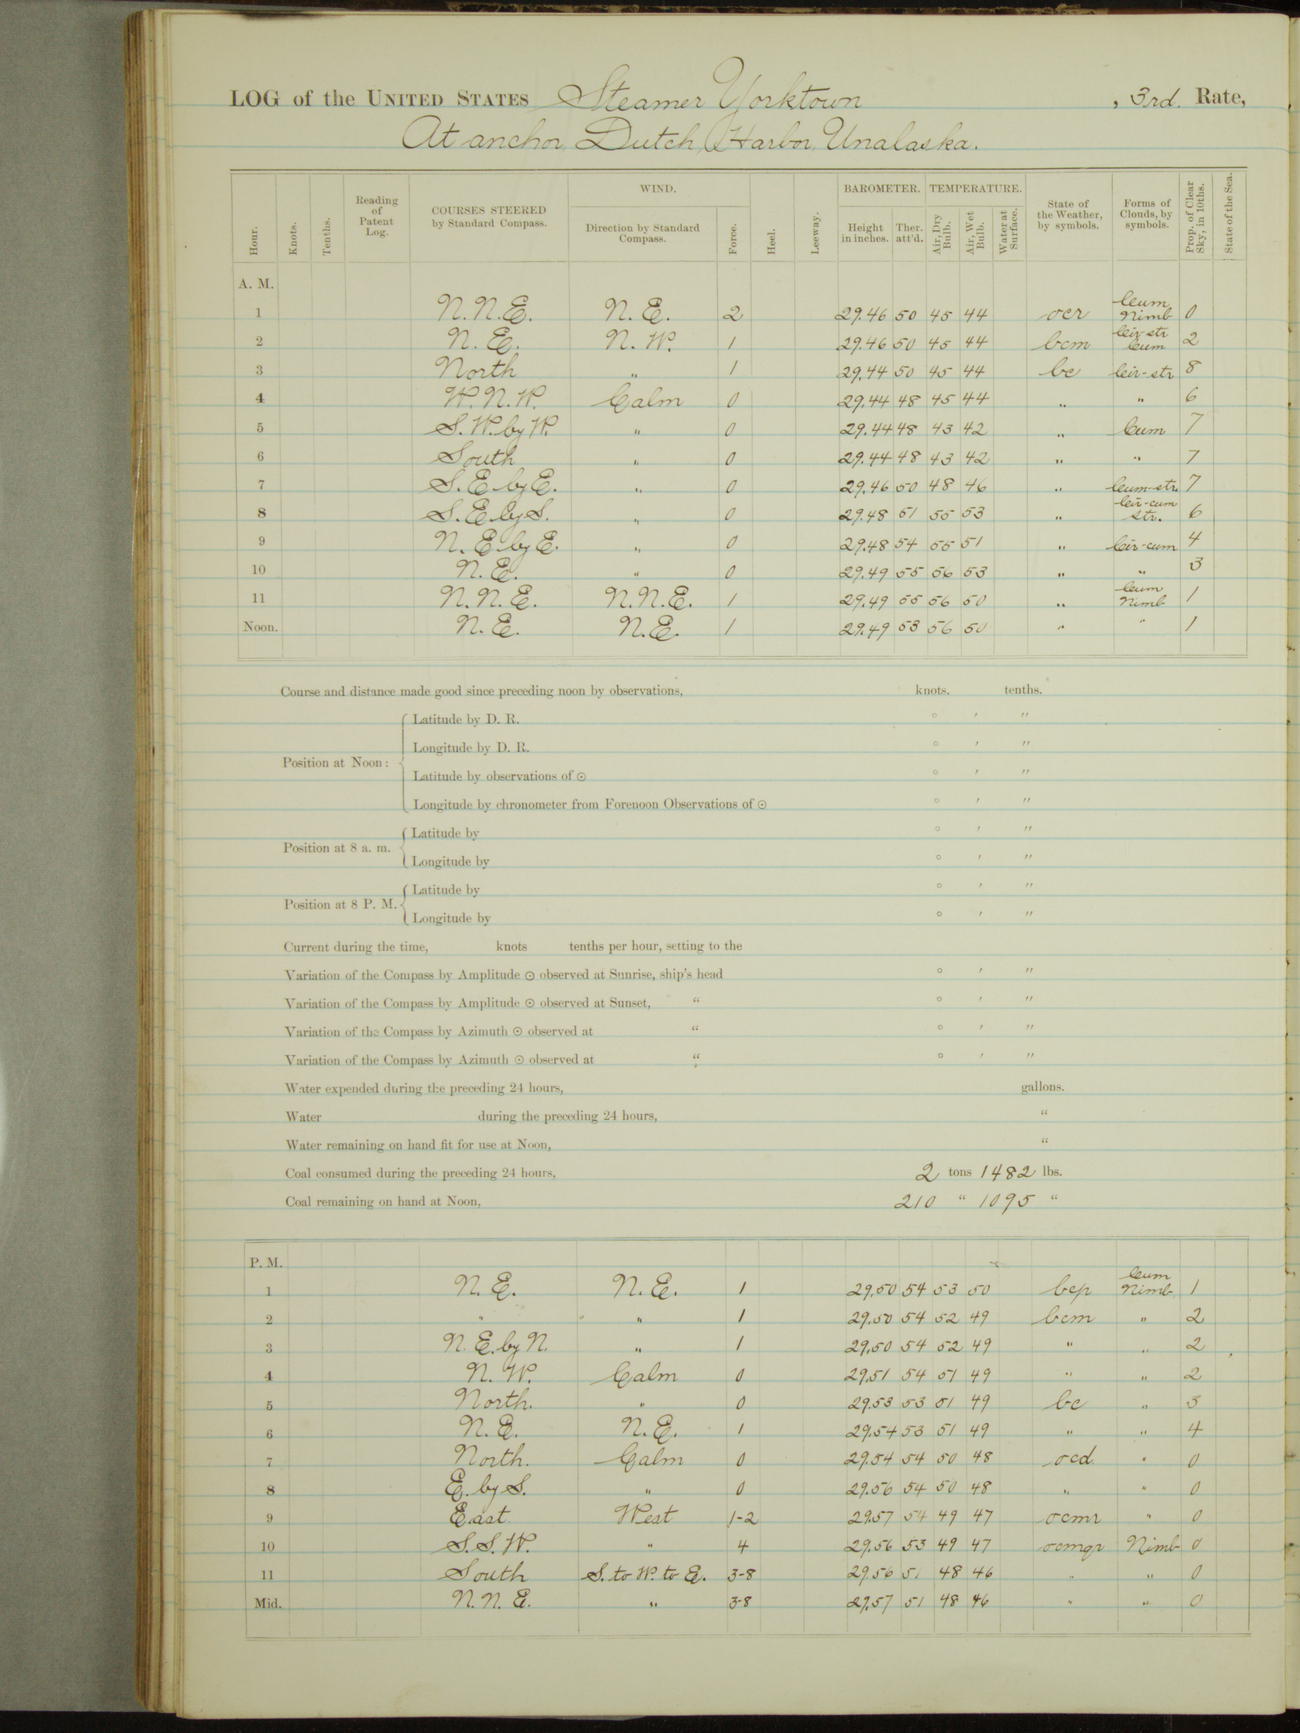 LOG of the UNITED STATES Steamer Yorktown, 3rd. Rate,
At anchor, Dutch Harbor, Unalaska.
Hour. Knots. Tenths. Reading of Patent Log. COURSES STEERED by Standard Compass. WIND. Direction by Standard Compass. Force. Heel. Leeway. BAROMETER. Height in inches. Ther. att'd. TEMPERATURE. Air, Dry Bulb. Air, Wet Bulb. Water at Surface. State of the Weather, by symbols. Forms of Clouds, by symbols. Prop. of Clear Sky, in 10ths. State of the Sea.
A. M.
1 N.N.E. N.E. 2 29.46 50 45 44 ocr Cum Nimb 0
2 N.E. N.W. 1 29.46 50 45 44 bcm Cir-str Cum 2
3 North " 1 29.44 50 45 44 bc Cir-str 8
4 W.N.W. Calm 0 29.44 48 45 44 " " 6
5 S.W. by W. " 0 29.44 48 43 42 " Cum 7
6 South " 0 29.44 48 43 42 " " 7
7 S.E. by E. " 0 29.46 50 48 46 " Cum-str. 7
8 S.E. by S. " 0 29.48 51 55 53 " Cir-cum Str. 6
9 N.E. by E. " 0 29.48 54 55 51 " Cir-cum 4
10 N.E. " 0 29.49 55 56 53 " " 3
11 N.N.E. N.N.E. 1 29.49 55 56 50 " Cum Nimb 1
Noon. N.E. N.E. 1 29.49 53 56 50 " " 1
Course and distance made good since preceding noon by observations, knots. tenths.
Position at Noon: Latitude by D. R. ° ′ ″
Longitude by D. R. ° ′ ″
Latitude by observations of ☉ ° ′ ″
Longitude by chronometer from Forenoon Observations of ☉ ° ′ ″
Position at 8 a. m. Latitude by ° ′ ″
Longitude by ° ′ ″
Position at 8 P. M. Latitude by ° ′ ″
Longitude by ° ′ ″
Current during the time, knots tenths per hour, setting to the
Variation of the Compass by Amplitude ☉ observed at Sunrise, ship's head ° ′ ″
Variation of the Compass by Amplitude ☉ observed at Sunset, " ° ′ ″
Variation of the Compass by Azimuth ☉ observed at " ° ′ ″
Variation of the Compass by Azimuth ☉ observed at " ° ′ ″
Water expended during the preceding 24 hours, gallons.
Water during the preceding 24 hours, "
Water remaining on hand fit for use at Noon, "
Coal consumed during the preceding 24 hours, 2 tons 1482 lbs.
Coal remaining on hand at Noon, 210 " 1095 "
P. M.
1 N.E. N.E. 1 29.50 54 53 50 bcp Cum Nimb 1
2 " " 1 29.50 54 52 49 bcm " 2
3 N.E. by N. " 1 29.50 54 52 49 " " 2
4 N.W. Calm 0 29.51 54 51 49 " " 2
5 North. " 0 29.53 53 51 49 bc " 3
6 N.E. N.E. 1 29.54 53 51 49 " " 4
7 North. Calm 0 29.54 54 50 48 ocd " 0
8 E. by S. " 0 29.56 54 50 48 " " 0
9 East. West 1-2 29.57 54 49 47 ocmr " 0
10 S.S.W. " 4 29.56 53 49 47 ocmqr Nimb 0
11 South S. to W. to E. 3-8 29.56 51 48 46 " " 0
Mid. N.N.E. " 3-8 29.57 51 48 46 " " 0